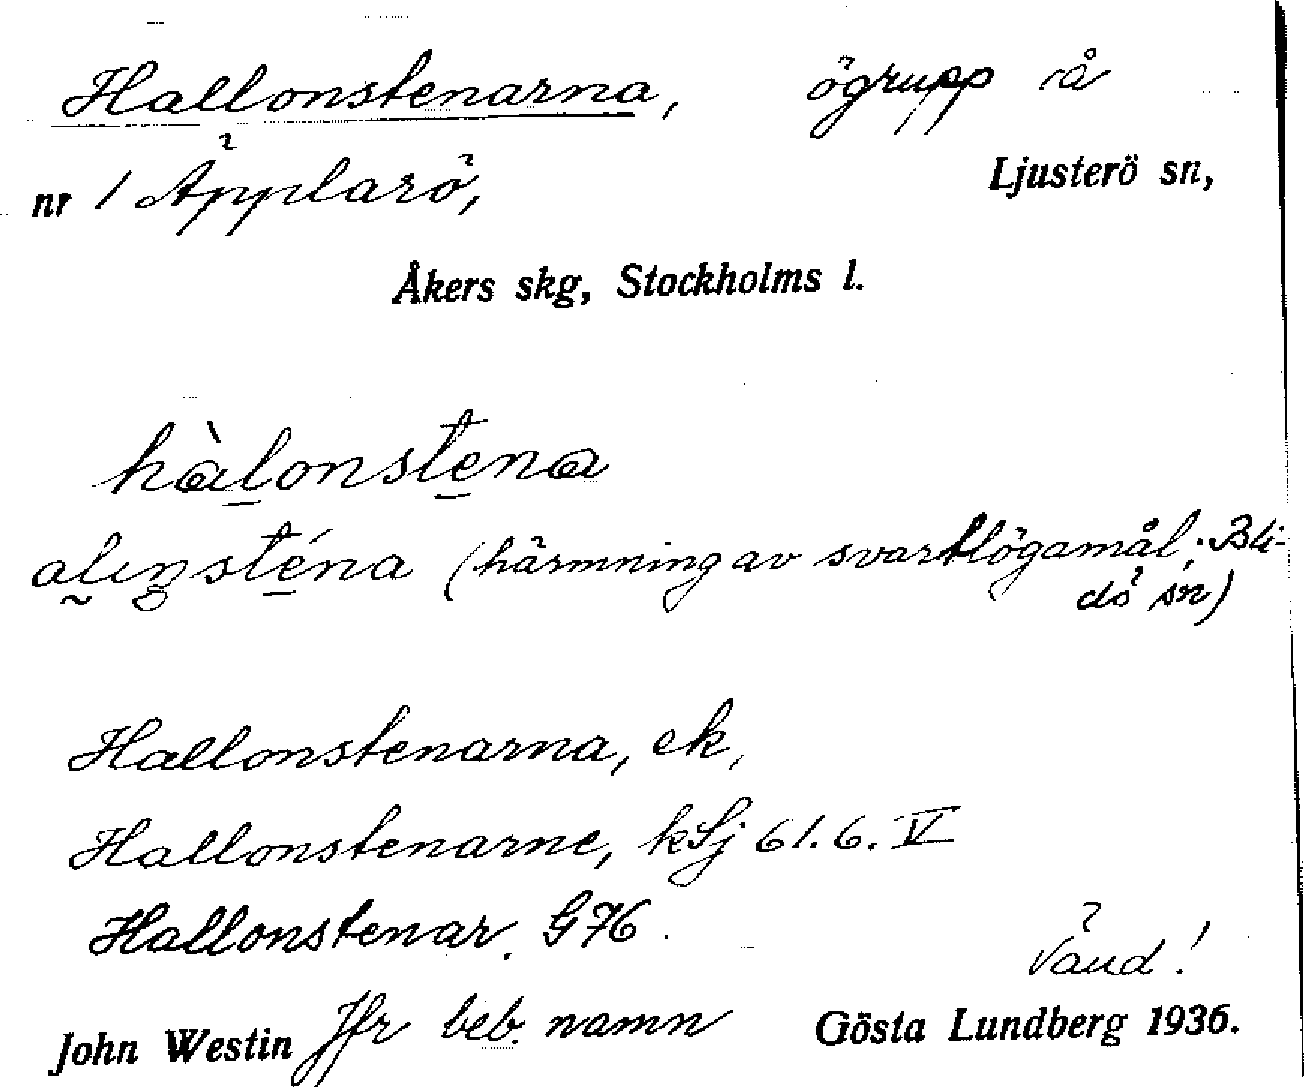 Hallonstenarna, ögrupp å
nr 1 Äpplarö, Ljusterö sn,
Åkers skg, Stockholms l.
hàlonstena
alıŋsténa (härmning av svartlögamål, Bli-
dö sn)
Hallonstenarna, ek,
Hallonstenarne, kSj 61.6. V
Hallonstenar. G76.
Vänd!
John Westin Jfr beb. namn Gösta Lundberg 1936.